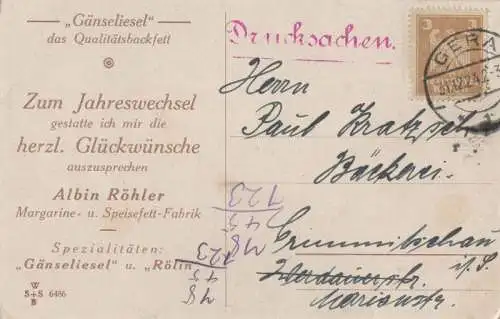 „Gänseliesel“
das Qualitätsbackfett
Zum Jahreswechsel
gestatte ich mir die
herzl. Glückwünsche
auszusprechen
Albin Röhler
Margarine- u. Speisefett-Fabrik
Spezialitäten:
„Gänseliesel“ u. „Rölin
W
S+S 6486
B
Drucksachen.
3 3
GERA
Herrn
Paul Kratzsch
Bäckerei
Crimmitschau
i/S.
Werdauerstr.
Marienstr.
123
45
78
123
45
78